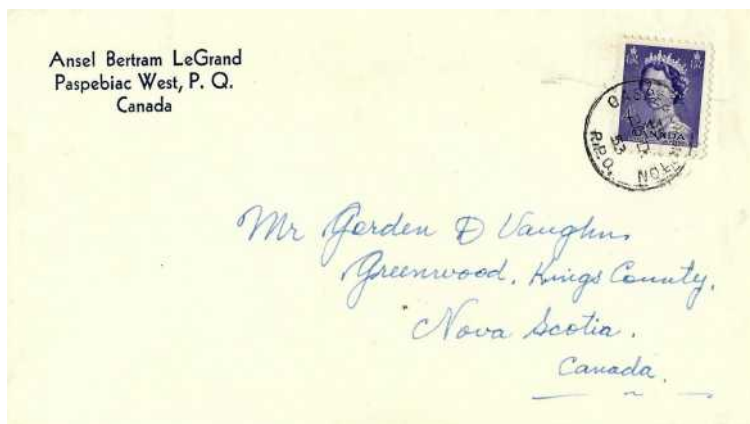 Ansel Bertram LeGrand
Paspebiac West, P. Q.
Canada
CANADA
R.P.O.
53
Mr Gorden D Vaughn
Greenwood, Kings County,
Nova Scotia.
Canada.